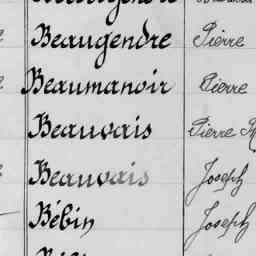 Beaugendre Pierre
Beaumanoir Pierre
Beauvais Pierre
Beauvais Joseph
Bébin Joseph